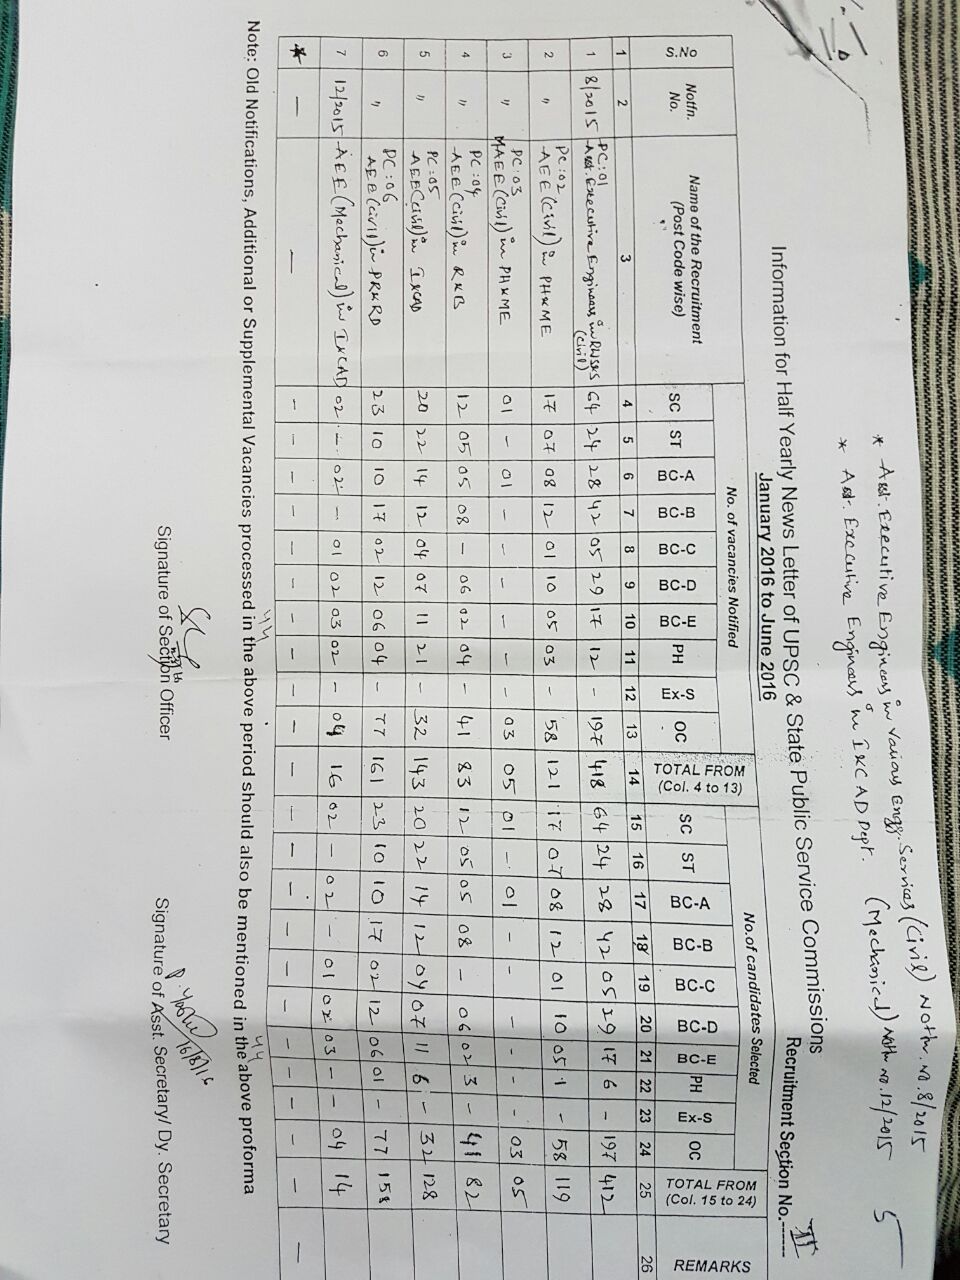 * Asst. Executive Engineers in various Engg. Services (Civil) Notfn. No. 8/2015
* Asst. Executive Engineers in I&CAD Dept. (Mechanical) Notfn no. 12/2015
5
Information for Half Yearly News Letter of UPSC & State Public Service Commissions
January 2016 to June 2016
Recruitment Section No. II
S.No Notfn. No. Name of the Recruitment (Post Code wise) No. of vacancies Notified No. of candidates Selected REMARKS
SC ST BC-A BC-B BC-C BC-D BC-E PH Ex-S OC TOTAL FROM (Col. 4 to 13) SC ST BC-A BC-B BC-C BC-D BC-E PH Ex-S OC TOTAL FROM (Col. 15 to 24)
1 2 3 4 5 6 7 8 9 10 11 12 13 14 15 16 17 18 19 20 21 22 23 24 25 26
1 8/2015 PC:01 Asst. Executive Engineers in RWS&S (Civil) 64 24 28 42 05 29 17 12 - 197 418 64 24 28 42 05 29 17 6 - 197 412
2 " PC:02 AEE (Civil) in PH&ME 17 07 08 12 01 10 05 03 - 58 121 17 07 08 12 01 10 05 1 - 58 119
3 " PC:03 AEE (Civil) in PH&ME 01 - 01 - - - - - - 03 05 01 - 01 - - - - - - 03 05
4 " PC:04 AEE (Civil) in R&B 12 05 05 08 - 06 02 04 - 41 83 12 05 05 08 - 06 02 3 - 41 82
5 " PC:05 AEE (Civil) in I&CAD 20 22 14 12 04 07 11 21 - 32 143 20 22 14 12 04 07 11 6 - 32 128
6 " PC:06 AEE (Civil) in PR&RD 23 10 10 17 02 12 06 04 - 77 161 23 10 10 17 02 12 06 01 - 77 158
7 12/2015 AEE (Mechanical) in I&CAD 02 - 02 - 01 02 03 02 - 04 16 02 - 02 - 01 02 03 - - 04 14
* - - - - - - - - - - - - - - - - - - - - - - - - -
Note: Old Notifications, Additional or Supplemental Vacancies processed in the above period should also be mentioned in the above proforma
Signature of Section Officer
16/8/16
Signature of Asst. Secretary/ Dy. Secretary